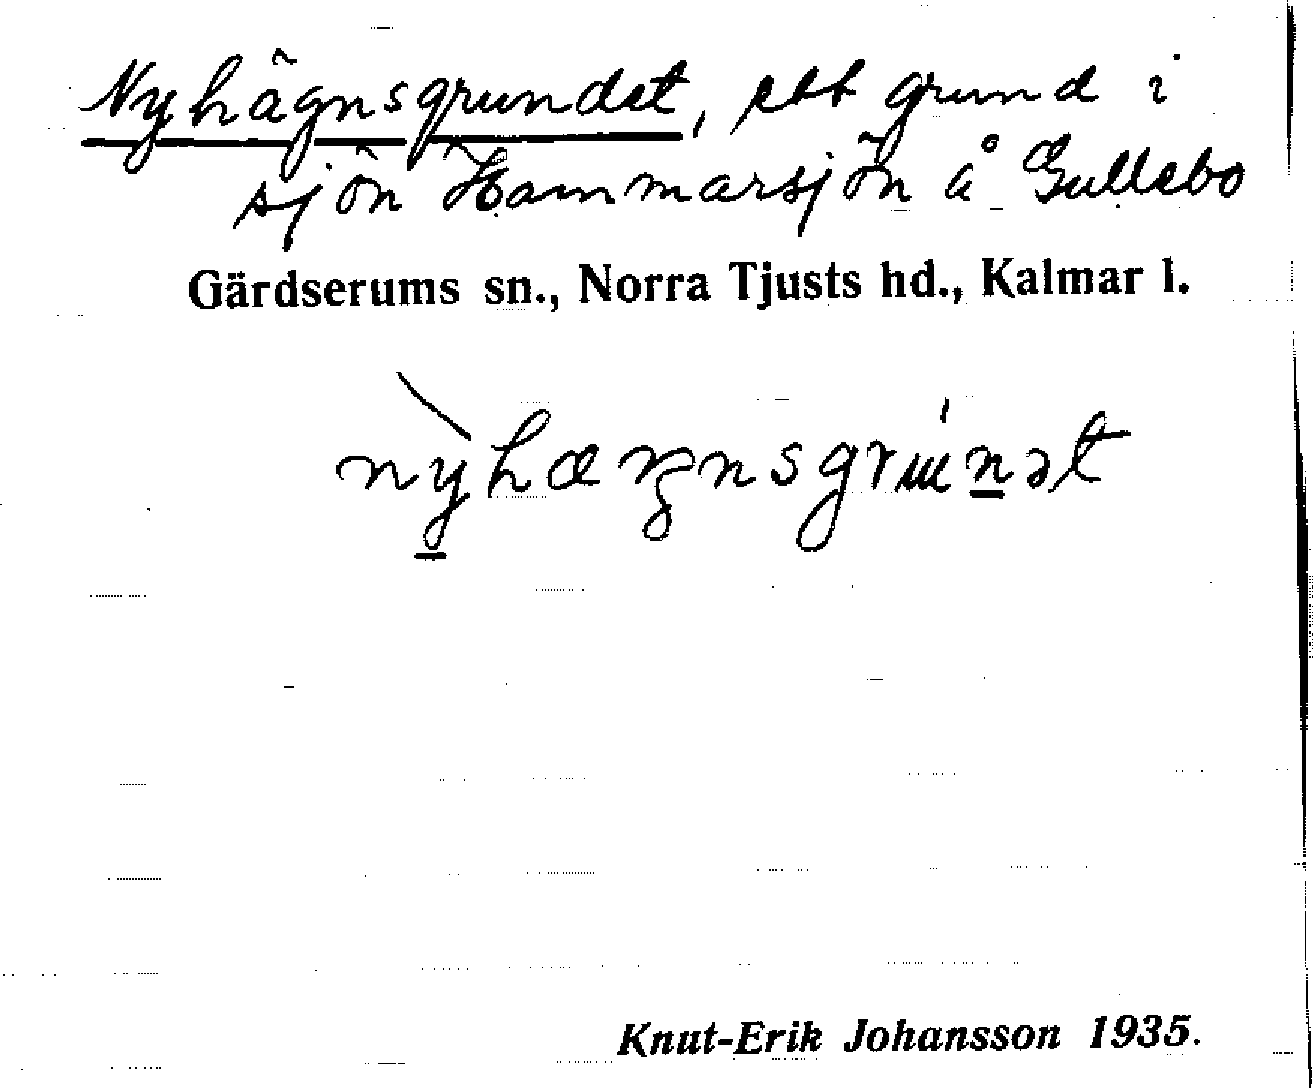 Nyhägnsgrundet, ett grund i
sjön Hammarsjön å Gullebo
Gärdserums sn., Norra Tjusts hd., Kalmar l.
nỳhæŋnsgrɯ́n̲ət
Knut-Erik Johansson 1935.